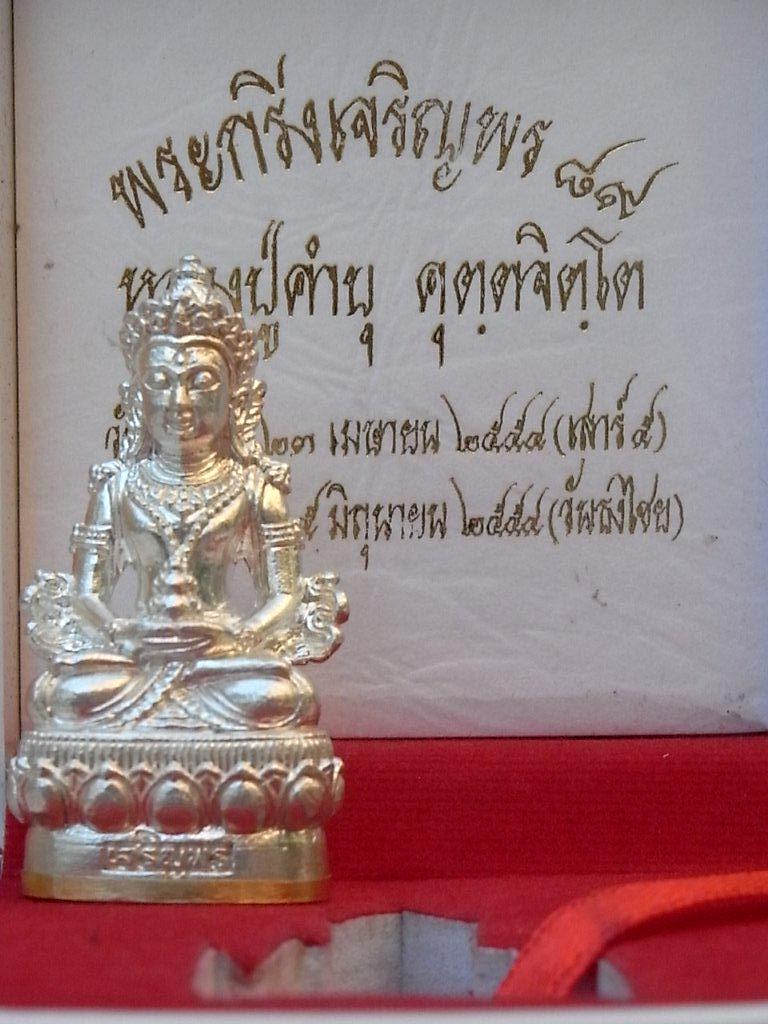 พระกริ่งเจริญพร ๘๙
หลวงปู่คำบุ คุตฺตจิตฺโต
๒๓ เมษายน ๒๕๕๔ (เสาร์ ๕)
๕ มิถุนายน ๒๕๕๔ (วันธงไชย)
เจริญพร